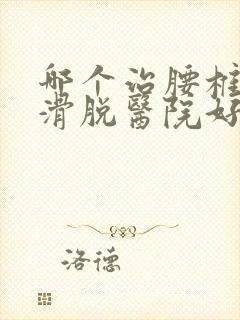 哪个治腰椎
滑脱醫院好
洛德